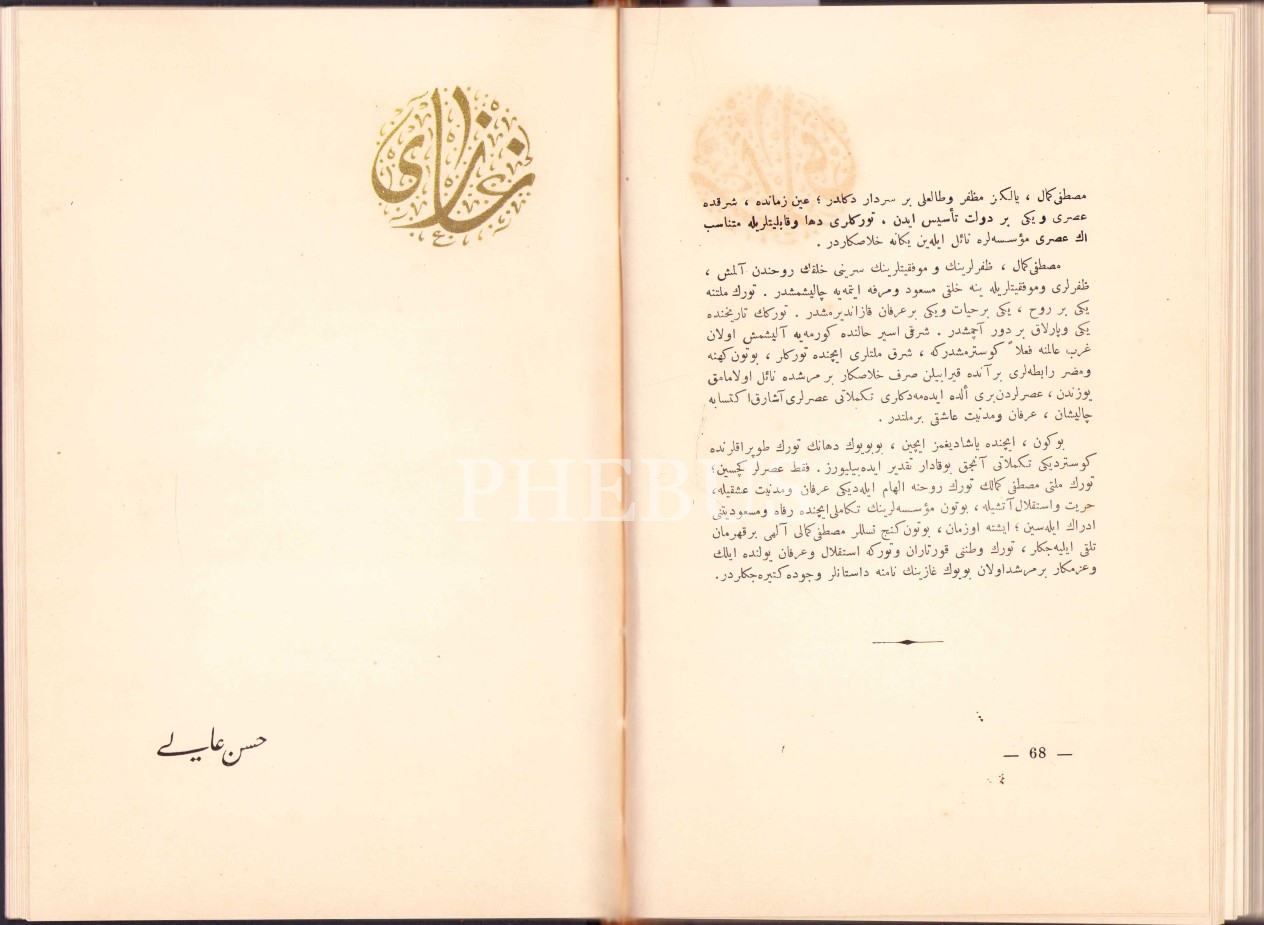 مصطفی كمال ، يالكز مظفر وطالعلی بر سردار دكلدر ؛ عين زمانده ، شرقده
عصری و يكی بر دولت تأسيس ايدن ، توركلری دها وقابليتلريله متناسب
اك عصری مؤسسه‌لره نائل ايله‌ين يكانه خلاصكاردر .
مصطفی كمال ، ظفرلرينك و موفقيتلرينك سرينی خلقك روحندن آلمش ،
ظفرلری وموفقيتلريله ينه خلقی مسعود ومرفه ايتمه‌يه چاليشمشدر . تورك ملتنه
يكی بر روح ، يكی بر حيات ويكی بر عرفان قازانديرمشدر . توركك تاريخنده
يكی وپارلاق بر دور آچمشدر . شرقی اسير حالنده كورمه‌يه آليشمش اولان
غرب عالمنه فعلاً كوسترمشدركه ، شرق ملتلری ايچنده توركلر ، بوتون كهنه
ومضر رابطه‌لری بر آنده قيرابيلن صرف خلاصكار بر مرشده نائل اولامامق
يوزندن ، عصرلردن‌بری ألده ايده‌مه‌دكلری تكملاتی عصرلری آشارق اكتسابه
چاليشان ، عرفان ومدنيت عاشقی بر ملتدر .
بوكون ، ايچنده ياشاديغمز ايچين ، بوبويوك دهانك تورك طوپراقلرنده
كوستردیكی تكملاتی آنجق بوقادار تقدير ايده‌بيليورز . فقط عصرلر كچسين ؛
تورك ملتی مصطفی كمالك تورك روحنه الهام ايله‌ديكی عرفان ومدنيت عشقيله ،
حريت واستقلال آتشيله ، بوتون مؤسسه‌لرينك تكاملی ايچنده رفاه ومسعوديتنی
ادراك ايله‌سين ؛ ايشته اوزمان ، بوتون كنج نسللر مصطفی كمالی آلهی بر قهرمان
تلقی ايليه‌جكلر ، تورك وطننی قورتاران وتوركه استقلال وعرفان يولنده ايلك
وعزمكار بر مرشد اولان بويوك غازينك نامنه داستانلر وجوده كتيره‌جكلردر .
— 68 —
غازی
حسن عالی
PHEBUS